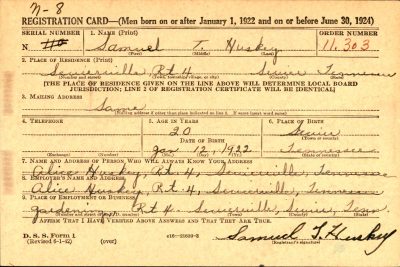 N-8
REGISTRATION CARD—(Men born on or after January 1, 1922 and on or before June 30, 1924)
SERIAL NUMBER 1. NAME (Print) ORDER NUMBER
N 110 Samuel T. Huskey 11,303
(First) (Middle) (Last)
2. PLACE OF RESIDENCE (Print)
Sevierville, Rt 4 Sevier Tennessee
(Number and street) (Town, township, village, or city) (County) (State)
[THE PLACE OF RESIDENCE GIVEN ON THE LINE ABOVE WILL DETERMINE LOCAL BOARD
JURISDICTION; LINE 2 OF REGISTRATION CERTIFICATE WILL BE IDENTICAL]
3. MAILING ADDRESS
Same
[Mailing address if other than place indicated on line 2. If same insert word same]
4. TELEPHONE 5. AGE IN YEARS 6. PLACE OF BIRTH
20 Sevier
DATE OF BIRTH (Town or county)
Jan 12, 1922 Tennessee
(Exchange) (Number) (Mo.) (Day) (Yr.) (State or country)
7. NAME AND ADDRESS OF PERSON WHO WILL ALWAYS KNOW YOUR ADDRESS
Alice Huskey, Rt. 4, Sevierville, Tennessee
8. EMPLOYER'S NAME AND ADDRESS
Alice Huskey, Rt 4, Sevierville, Tennessee
9. PLACE OF EMPLOYMENT OR BUSINESS
Gardening Rt 4 Sevierville, Sevier, Tenn
(Number and street or R. F. D. number) (Town) (County) (State)
I AFFIRM THAT I HAVE VERIFIED ABOVE ANSWERS AND THAT THEY ARE TRUE.
D. S. S. Form 1
(Revised 6-1-42) (over) 16—21630-2 Samuel T. Huskey
(Registrant's signature)